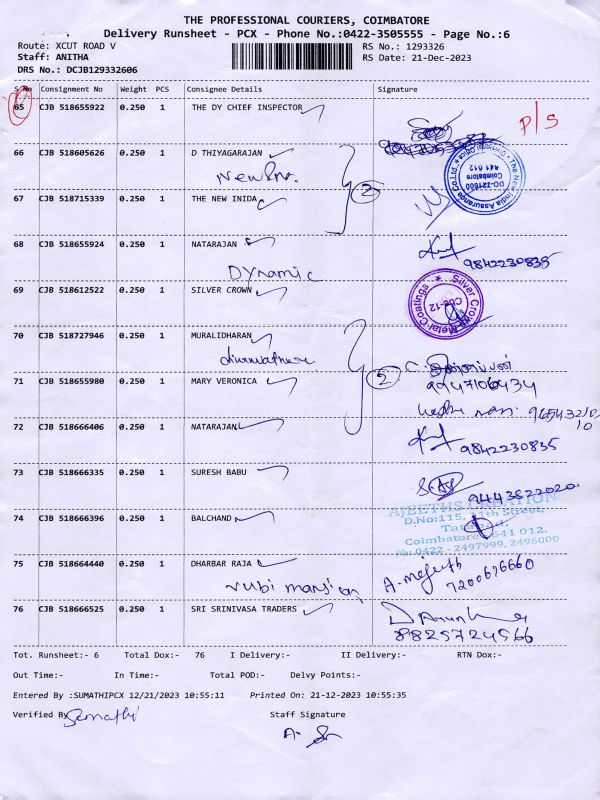 THE PROFESSIONAL COURIERS, COIMBATORE
Delivery Runsheet - PCX - Phone No.:0422-3505555 - Page No.:6
Route: XCUT ROAD V
RS No.: 1293326
Staff: ANITHA
RS Date: 21-Dec-2023
DRS No.: DCJB129332606
S No Consignment No Weight PCS Consignee Details Signature
65 CJB 518655922 0.250 1 THE DY CHIEF INSPECTOR
P/S
66 CJB 518605626 0.250 1 D THIYAGARAJAN
The New India Assurance Co.Ltd. * Divisional Office *
DO-721800
Coimbatore
641 012
67 CJB 518715339 0.250 1 THE NEW INIDA
3
68 CJB 518655924 0.250 1 NATARAJAN
9842230835
Dynamic
69 CJB 518612522 0.250 1 SILVER CROWN
* Silver Crown Metal Coatings
CBE-12
70 CJB 518727946 0.250 1 MURALIDHARAN
71 CJB 518655980 0.250 1 MARY VERONICA
2
9947106434
72 CJB 518666406 0.250 1 NATARAJAN
9842230835
73 CJB 518666335 0.250 1 SURESH BABU
74 CJB 518666396 0.250 1 BALCHAND
AJEETHS CREATION
D.No:115, 11th Street,
Coimbatore - 641 012.
Ph: 0422 - 2497999, 2496000
75 CJB 518664440 0.250 1 DHARBAR RAJA
rubi mansion
7200676660
76 CJB 518666525 0.250 1 SRI SRINIVASA TRADERS
8825724566
Tot. Runsheet:- 6 Total Dox:- 76 I Delivery:- II Delivery:- RTN Dox:-
Out Time:- In Time:- Total POD:- Delvy Points:-
Entered By :SUMATHIPCX 12/21/2023 10:55:11 Printed On: 21-12-2023 10:55:35
Verified By Sumathi
Staff Signature